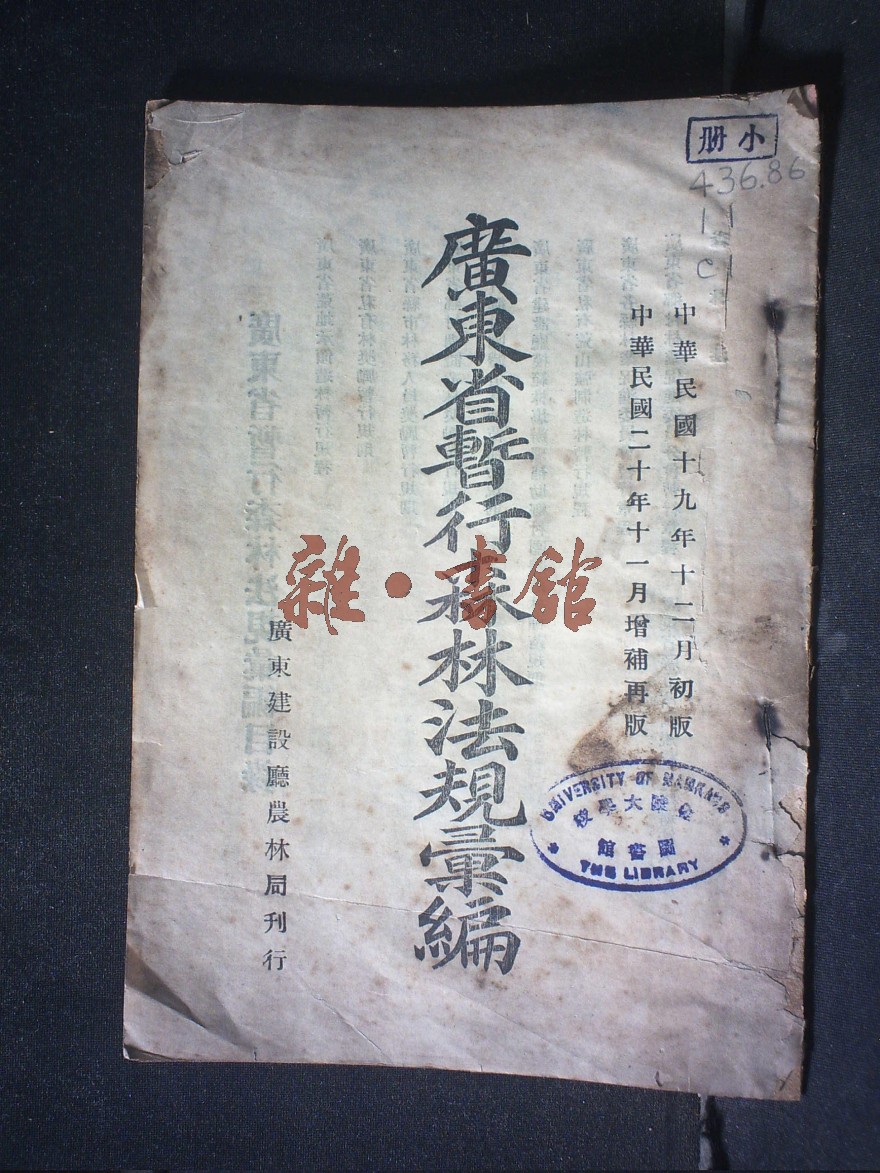 小册
436.86
1
C
中華民國十九年十二月初版
中華民國二十年十一月增補再版
廣東省暫行森林法規彙編
廣東建設廳農林局刊行
雜·書館
UNIVERSITY OF NANKING
金陵大學校
圖書館
THE LIBRARY